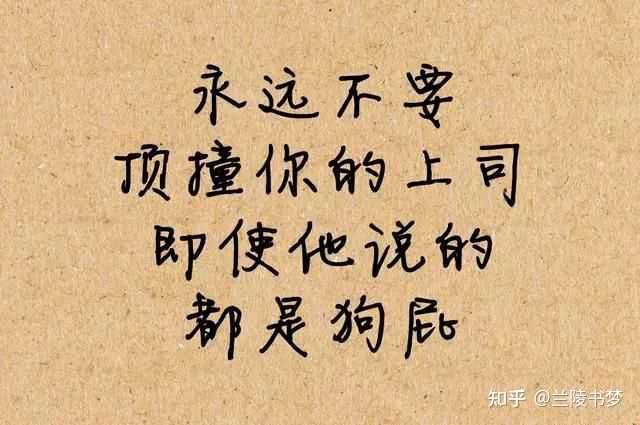 永远不要
顶撞你的上司
即使他说的
都是狗屁
知乎 @兰陵书梦